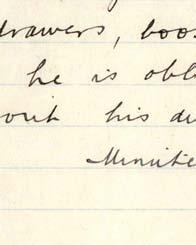 drawers, boo
he is obl
out his du
Minute